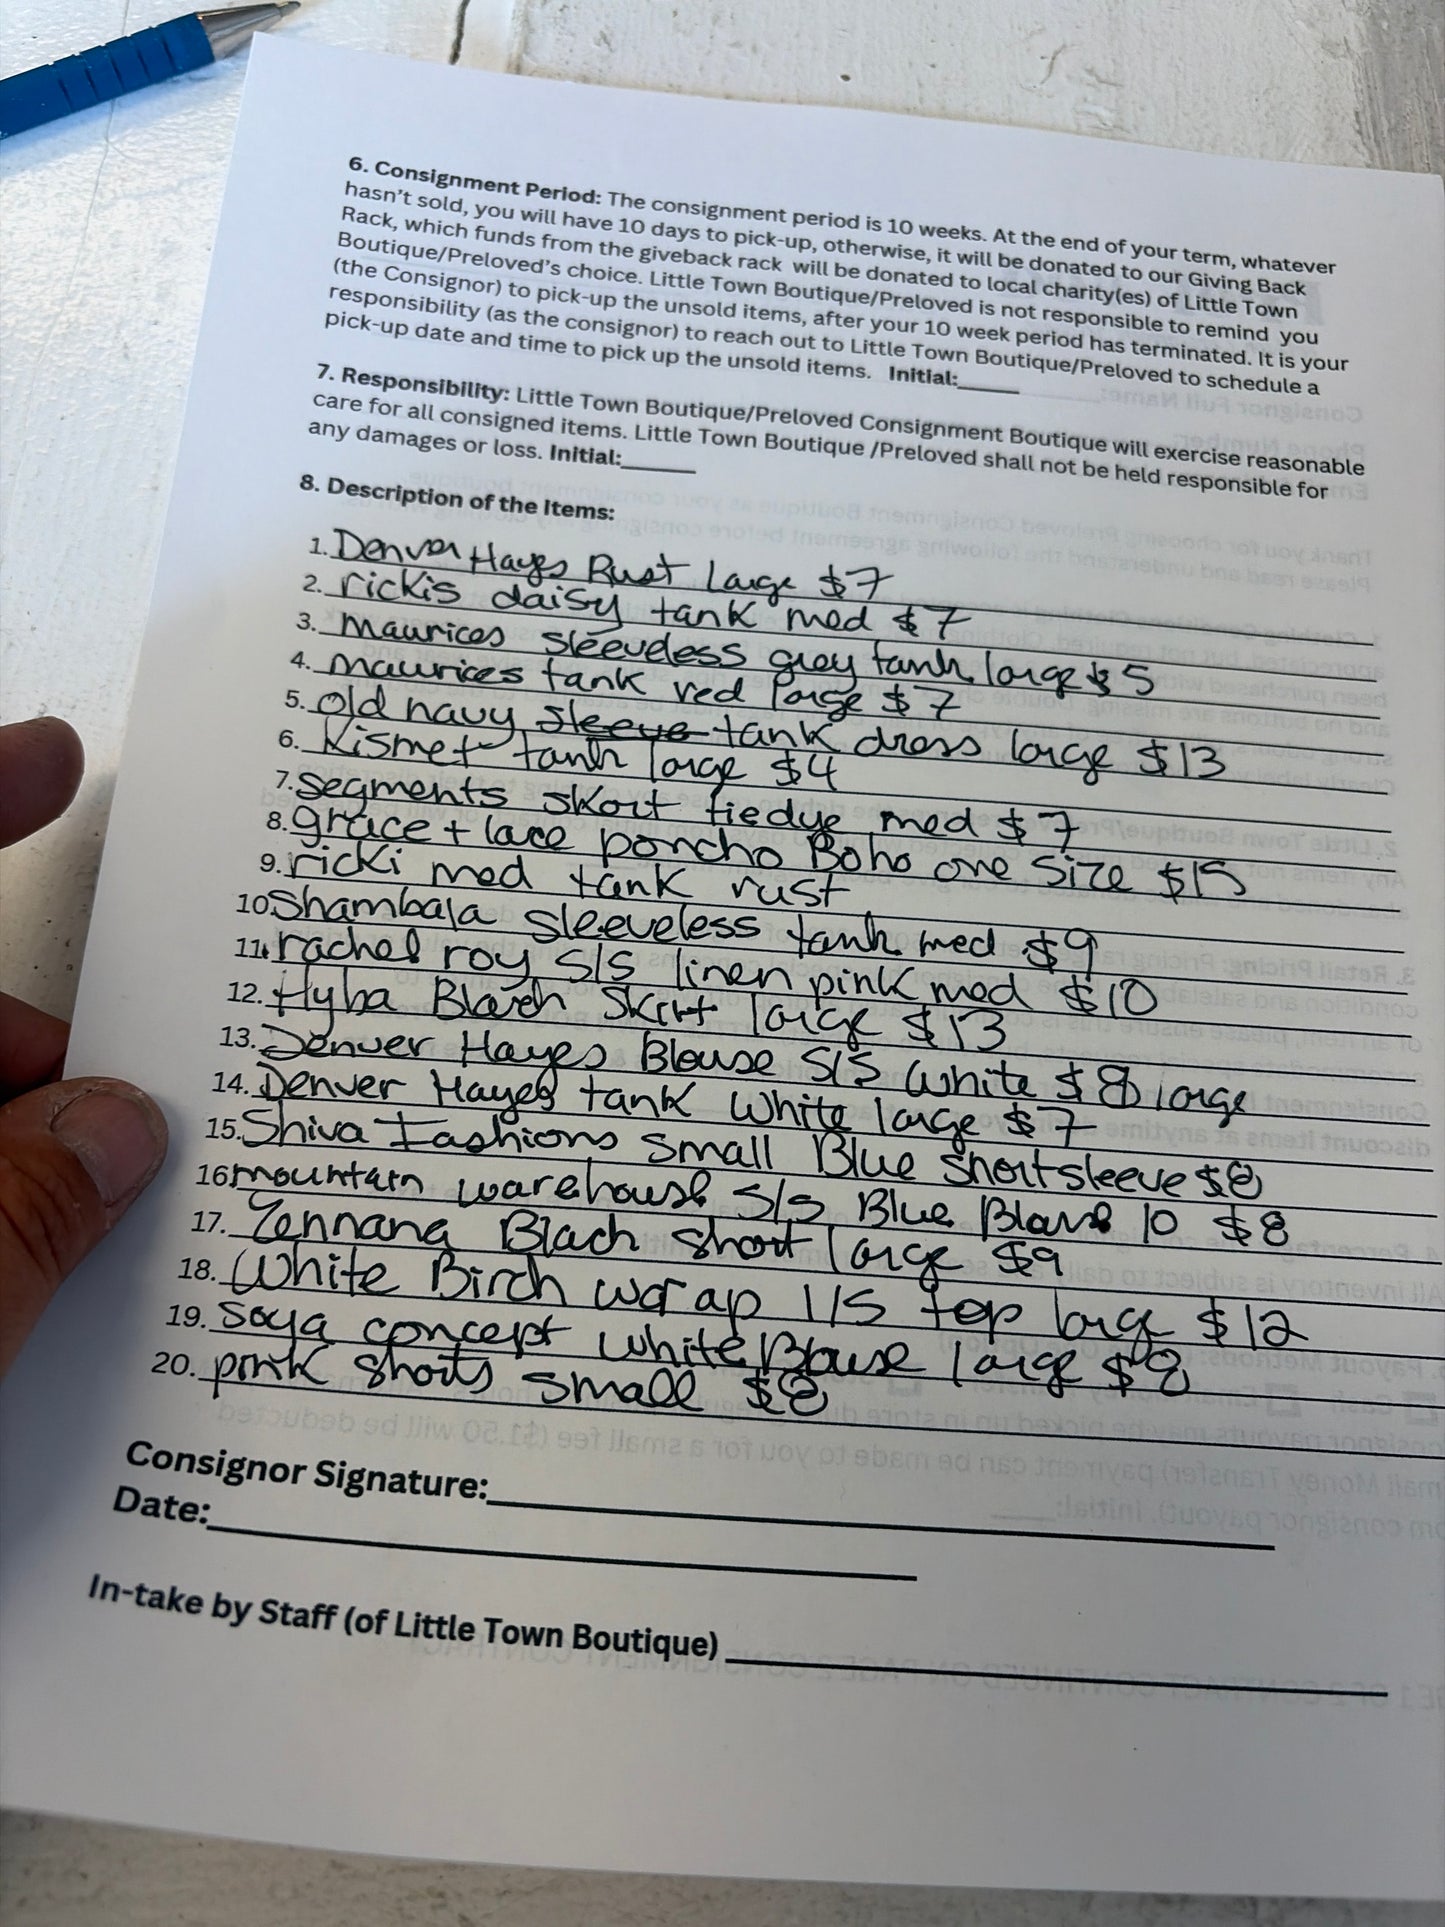 6. Consignment Period: The consignment period is 10 weeks. At the end of your term, whatever
hasn't sold, you will have 10 days to pick-up, otherwise, it will be donated to our Giving Back
Rack, which funds from the giveback rack will be donated to local charity(es) of Little Town
Boutique/Preloved's choice. Little Town Boutique/Preloved is not responsible to remind you
(the Consignor) to pick-up the unsold items, after your 10 week period has terminated. It is your
responsibility (as the consignor) to reach out to Little Town Boutique/Preloved to schedule a
pick-up date and time to pick up the unsold items. Initial:
7. Responsibility: Little Town Boutique/Preloved Consignment Boutique will exercise reasonable
care for all consigned items. Little Town Boutique /Preloved shall not be held responsible for
any damages or loss. Initial:
8. Description of the Items:
1. Denver Hayes Rust Large $7
2. rickis daisy tank med $7
3. maurices sleeveless grey tank large $5
4. maurices tank red large $7
5. old navy sleeve tank dress large $13
6. Kismet tank large $4
7. Segments skort tiedye med $7
8. grace + lace poncho Boho one size $15
9. ricki med tank rust
10. Shambala sleeveless tank med $9
11. rachel roy s/s linen pink med $10
12. Hyba Black Skirt large $13
13. Denver Hayes Blouse s/s white $8 large
14. Denver Hayes tank white large $7
15. Shiva Fashions small Blue short sleeve $8
16 mountain warehouse s/s Blue Blouse 10 $8
17. Zennana Black short large $9
18. White Birch wrap l/s top large $12
19. Soya concept white Blouse large $8
20. pink shorts small $8
Consignor Signature:
Date:
In-take by Staff (of Little Town Boutique)